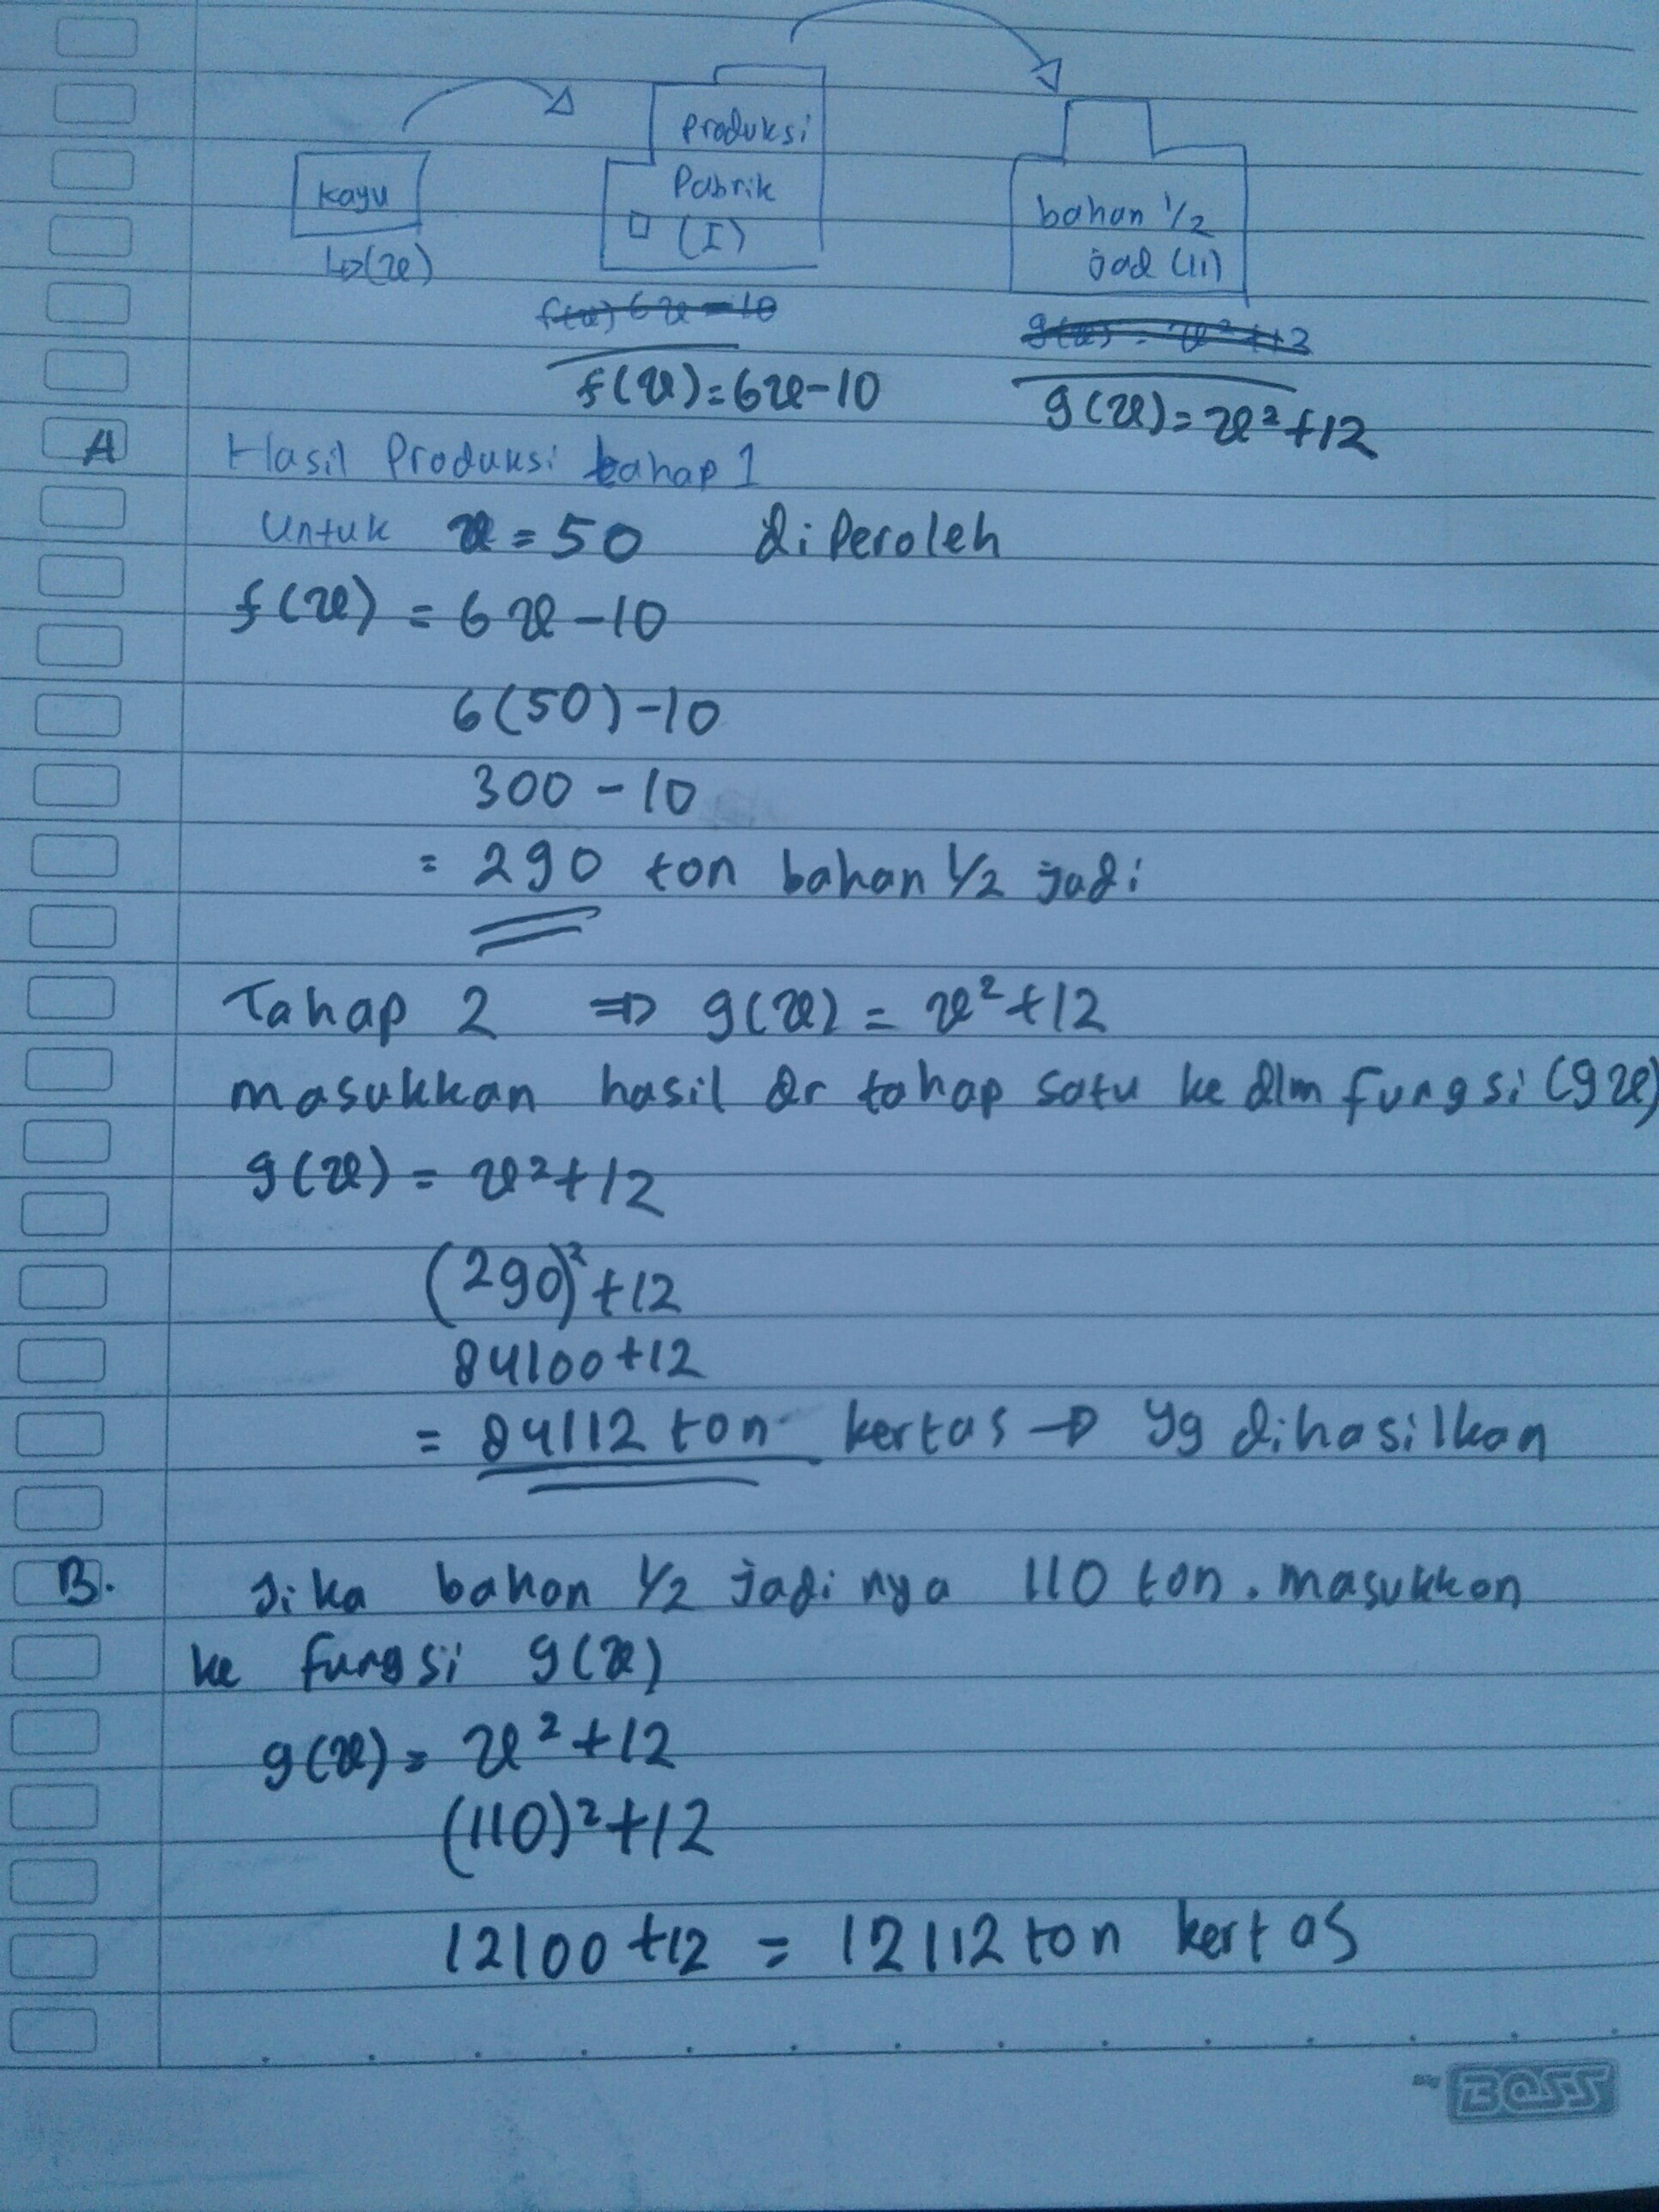 Kayu
↳(x)
Produksi
Pabrik
(I)
bahan 1/2
jad (II)
f(x) 6x - 10
g(x) = x² + 12
f(x) = 6x - 10
g(x) = x² + 12
A Hasil Produksi tahap 1
Untuk x = 50 diperoleh
f(x) = 6x - 10
6(50) - 10
300 - 10
= 290 ton bahan 1/2 jadi
Tahap 2 ⇒ g(x) = x² + 12
masukkan hasil dr tahap satu ke dlm fungsi (gx)
g(x) = x² + 12
(290)² + 12
84100 + 12
= 84112 ton kertas → yg dihasilkan
B. Jika bahan 1/2 jadi nya 110 ton. masukkan
ke fungsi g(x)
g(x) = x² + 12
(110)² + 12
12100 + 12 = 12112 ton kertas
BOSS